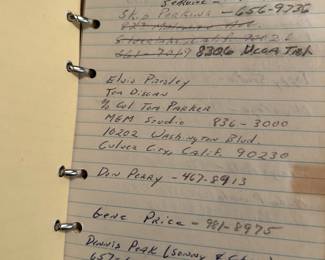 Service -
Skip Perkins - 656-9736
8306 Ucca Trl.
Elvis Presley
Tom Diskin
% Col Tom Parker
MGM Studio 836-3000
10202 Washington Blvd.
Culver City, Calif. 90230
Don Perry - 467-8913
Gene Price - 981-8975
Dennis Peak (Sonny &